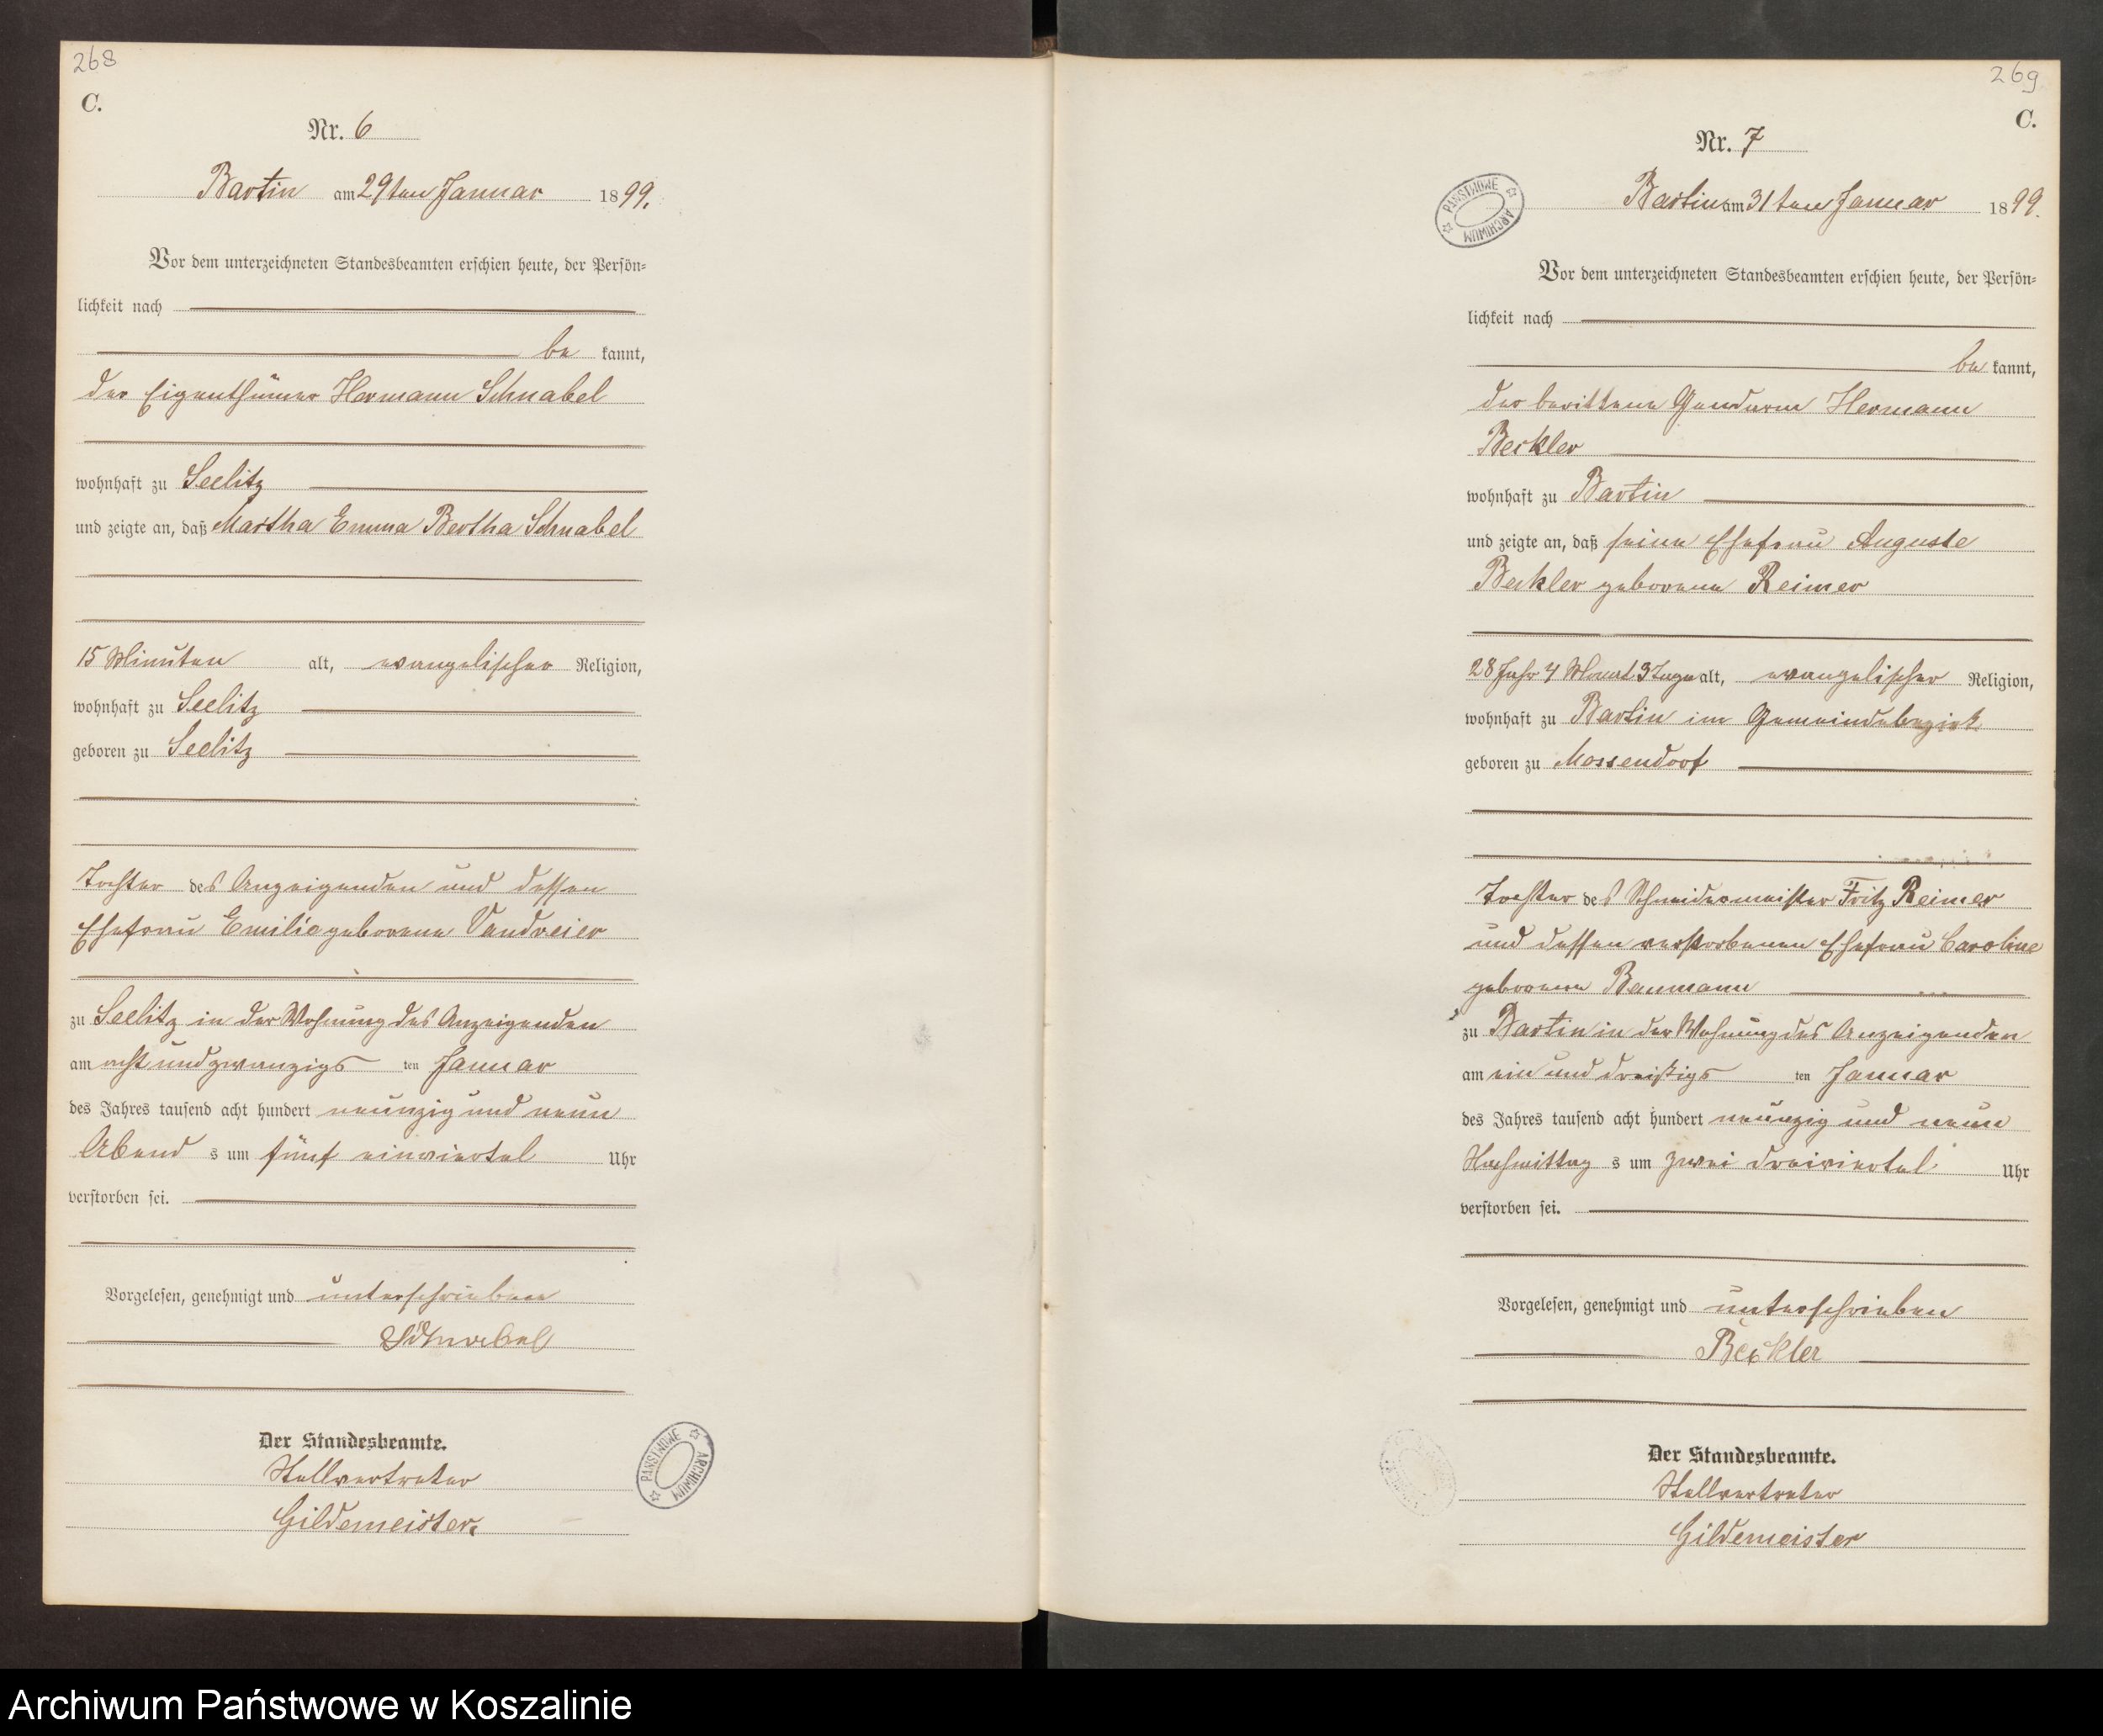 268
C.
Nr. 6
Bartin am 29ten Januar 1899.
Vor dem unterzeichneten Standesbeamten erschien heute, der Persön-
lichkeit nach
be kannt,
der Eigenthümer Hermann Schnabel
wohnhaft zu Seelitz
und zeigte an, daß Martha Emma Bertha Schnabel
15 Minuten alt, evangelischer Religion,
wohnhaft zu Seelitz
geboren zu Seelitz
Tochter des Anzeigenden und dessen
Ehefrau Emilie geborene Vandreier
zu Seelitz in der Wohnung des Anzeigenden
am acht und zwanzigs ten Januar
des Jahres tausend acht hundert neunzig und neun
Abend s um fünf einviertel Uhr
verstorben sei.
Vorgelesen, genehmigt und unterschrieben
Schnabel
Der Standesbeamte.
Stellvertreter
Gildemeister.
PAŃSTWOWE ARCHIWUM
269
C.
Nr. 7
PAŃSTWOWE ARCHIWUM
Bartin am 31ten Januar 1899.
Vor dem unterzeichneten Standesbeamten erschien heute, der Persön-
lichkeit nach
be kannt,
der berittene Gendarm Hermann
Beckler
wohnhaft zu Bartin
und zeigte an, daß seine Ehefrau Auguste
Beckler geborene Reimer
28 Jahr 4 Monat 3 Tage alt, evangelischer Religion,
wohnhaft zu Bartin im Gemeindebezirk
geboren zu Massendorf
Tochter des Schneidermeister Fritz Reimer
und dessen verstorbenen Ehefrau Caroline
geborene Baumann
zu Bartin in der Wohnung des Anzeigenden
am ein und dreißigs ten Januar
des Jahres tausend acht hundert neunzig und neun
Nachmittag s um zwei dreiviertel Uhr
verstorben sei.
Vorgelesen, genehmigt und unterschrieben
Beckler
Der Standesbeamte.
Stellvertreter
Gildemeister
Archiwum Państwowe w Koszalinie